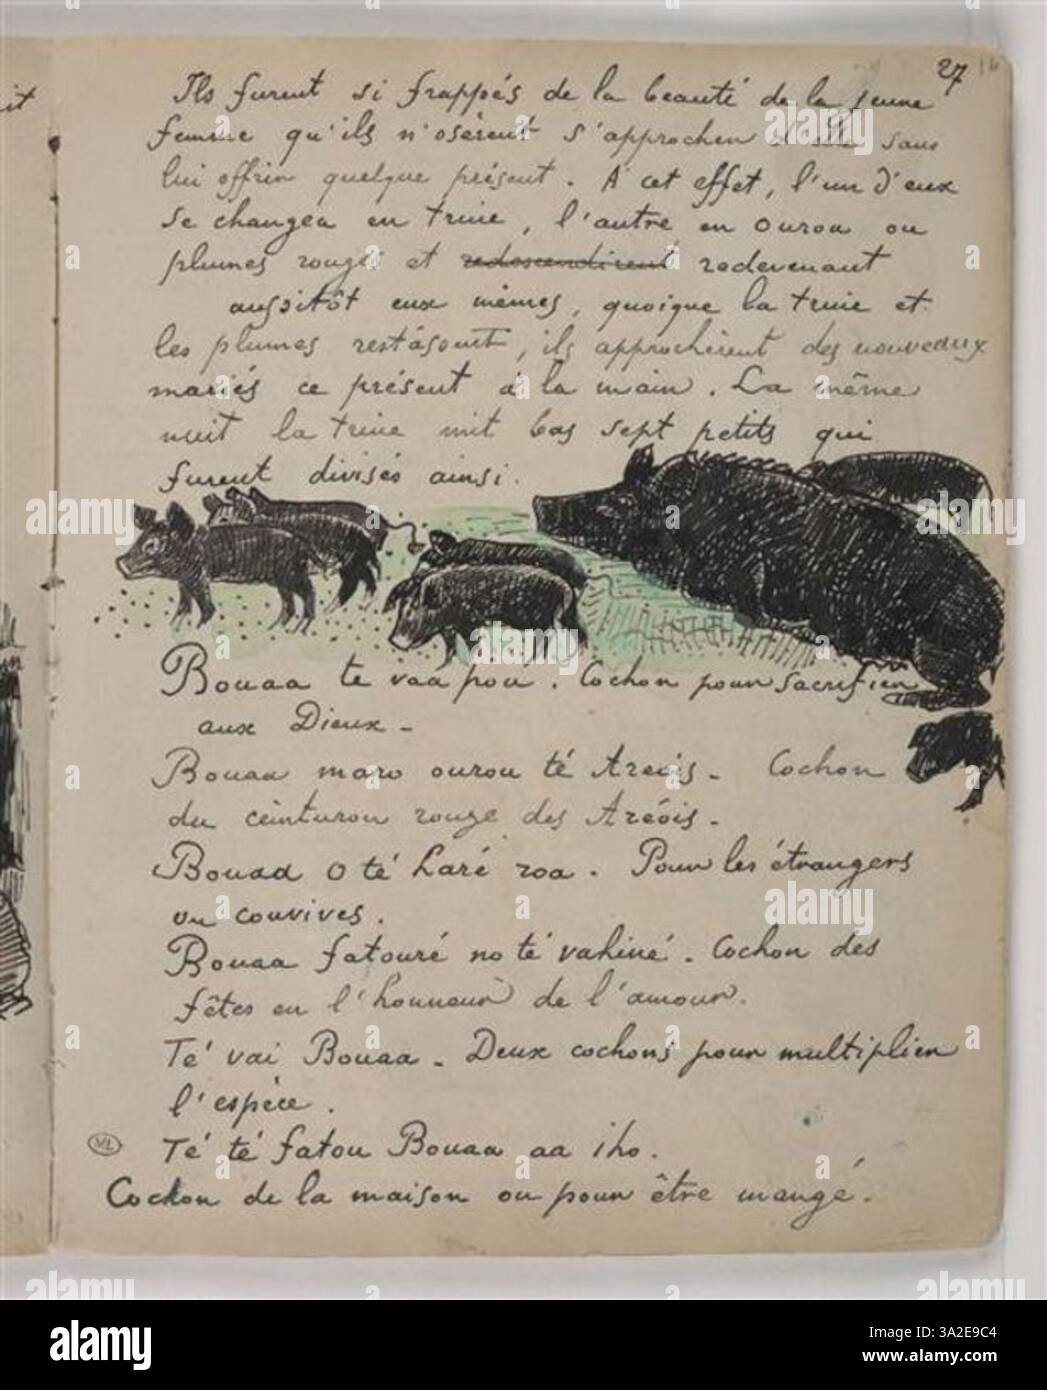 27
Ils furent si frappés de la beauté de la jeune
femme qu'ils n'osèrent s'approcher d'elle sans
lui offrir quelque présent. A cet effet, l'un d'eux
se changea en truie, l'autre en ourou ou
plumes rouges et redescendirent redevenant
aussitôt eux mêmes, quoique la truie et
les plumes restâssent, ils approchèrent des nouveaux
mariés ce présent à la main. La même
nuit la truie mit bas sept petits qui
furent divisés ainsi.
Bouaa te vaa pou. Cochon pour sacrifier
aux Dieux -
Bouaa maro ourou té Areois - Cochon
du ceinturon rouge des Aréois -
Bouaa O té haré roa. Pour les étrangers
ou convives.
Bouaa fatouré no té vahiné. Cochon des
fêtes en l'honneur de l'amour.
Té vai Bouaa - Deux cochons pour multiplier
l'espèce.
Té té fatou Bouaa aa iho.
Cochon de la maison ou pour être mangé.
ML
it
alamy
a
alamy
Image ID: 3A2E9C4
www.alamy.com